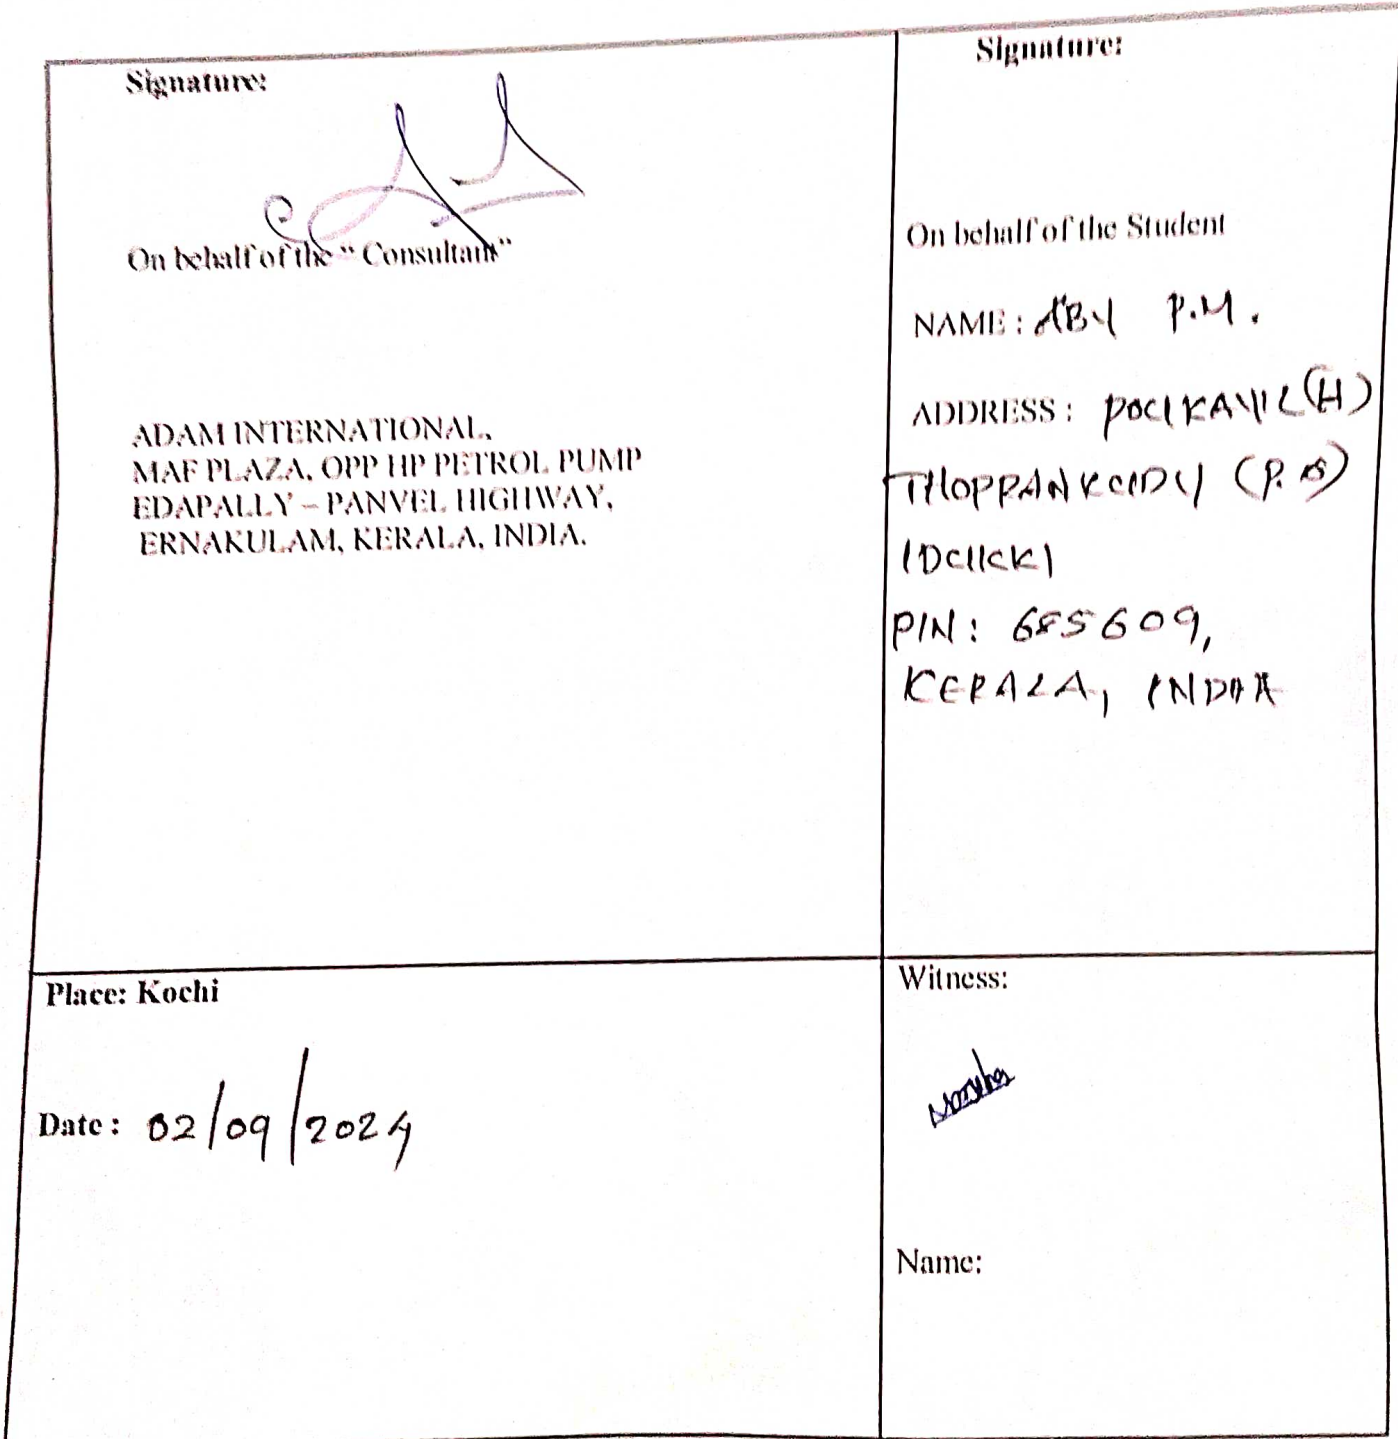 Signature:
On behalf of the “ Consultant”
ADAM INTERNATIONAL,
MAF PLAZA, OPP HP PETROL PUMP
EDAPALLY – PANVEL HIGHWAY,
ERNAKULAM, KERALA, INDIA.
Signature:
On behalf of the Student
NAME : ABY P.M.
ADDRESS : POIKAYIL (H)
THOPPANKUDY (P.O)
IDUKKI
PIN: 685609,
KERALA, INDIA
Place: Kochi
Date : 02/09/2024
Witness:
Name: